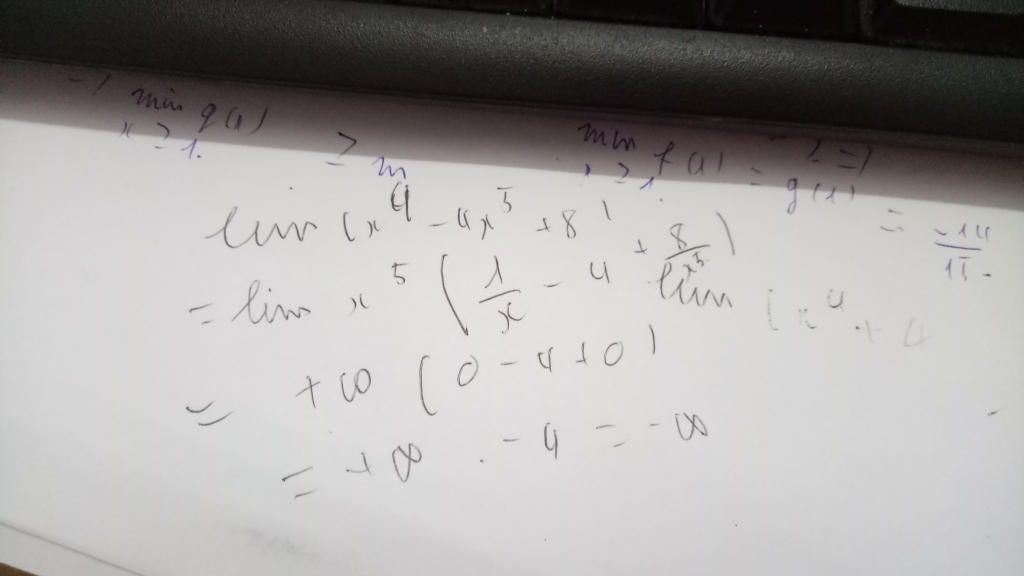 min g(x) ≥ m min f(x) = g(1) = -14
x ≥ 1.
lim (x^4 - 4x^5 + 8)
= lim x^5 (1/x - 4 + 8/x^5) lim (x^4 + 4
= +∞ (0 - 4 + 0)
= +∞ . -4 = -∞